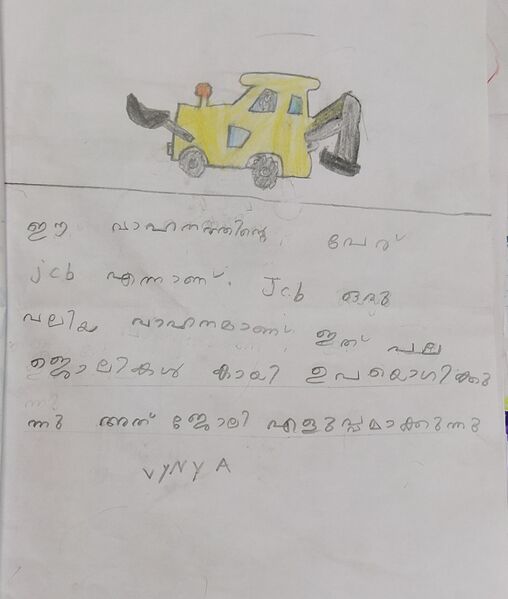 ഈ വാഹനത്തിന്റെ പേര്
jcb എന്നാണ്. Jcb ഒരു
വലിയ വാഹനമാണ് ഇത് പല
ജോലികൾ കായി ഉപയോഗിക്കു
ന്നു അത് ജോലി എളുപ്പമാക്കുന്നു
VYNYA